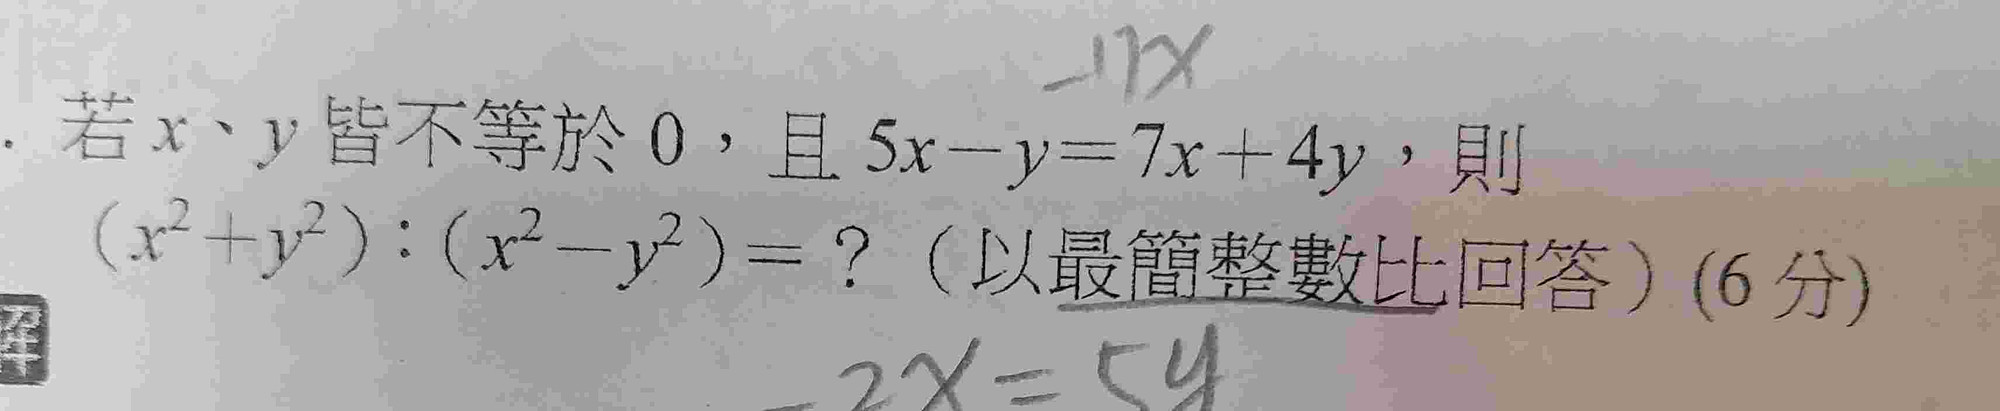 -17x
. 若 x、y 皆不等於 0，且 5x－y＝7x＋4y，則
（x²＋y²）：（x²－y²）＝？（以最簡整數比回答）(6 分)
解
-2x=5y